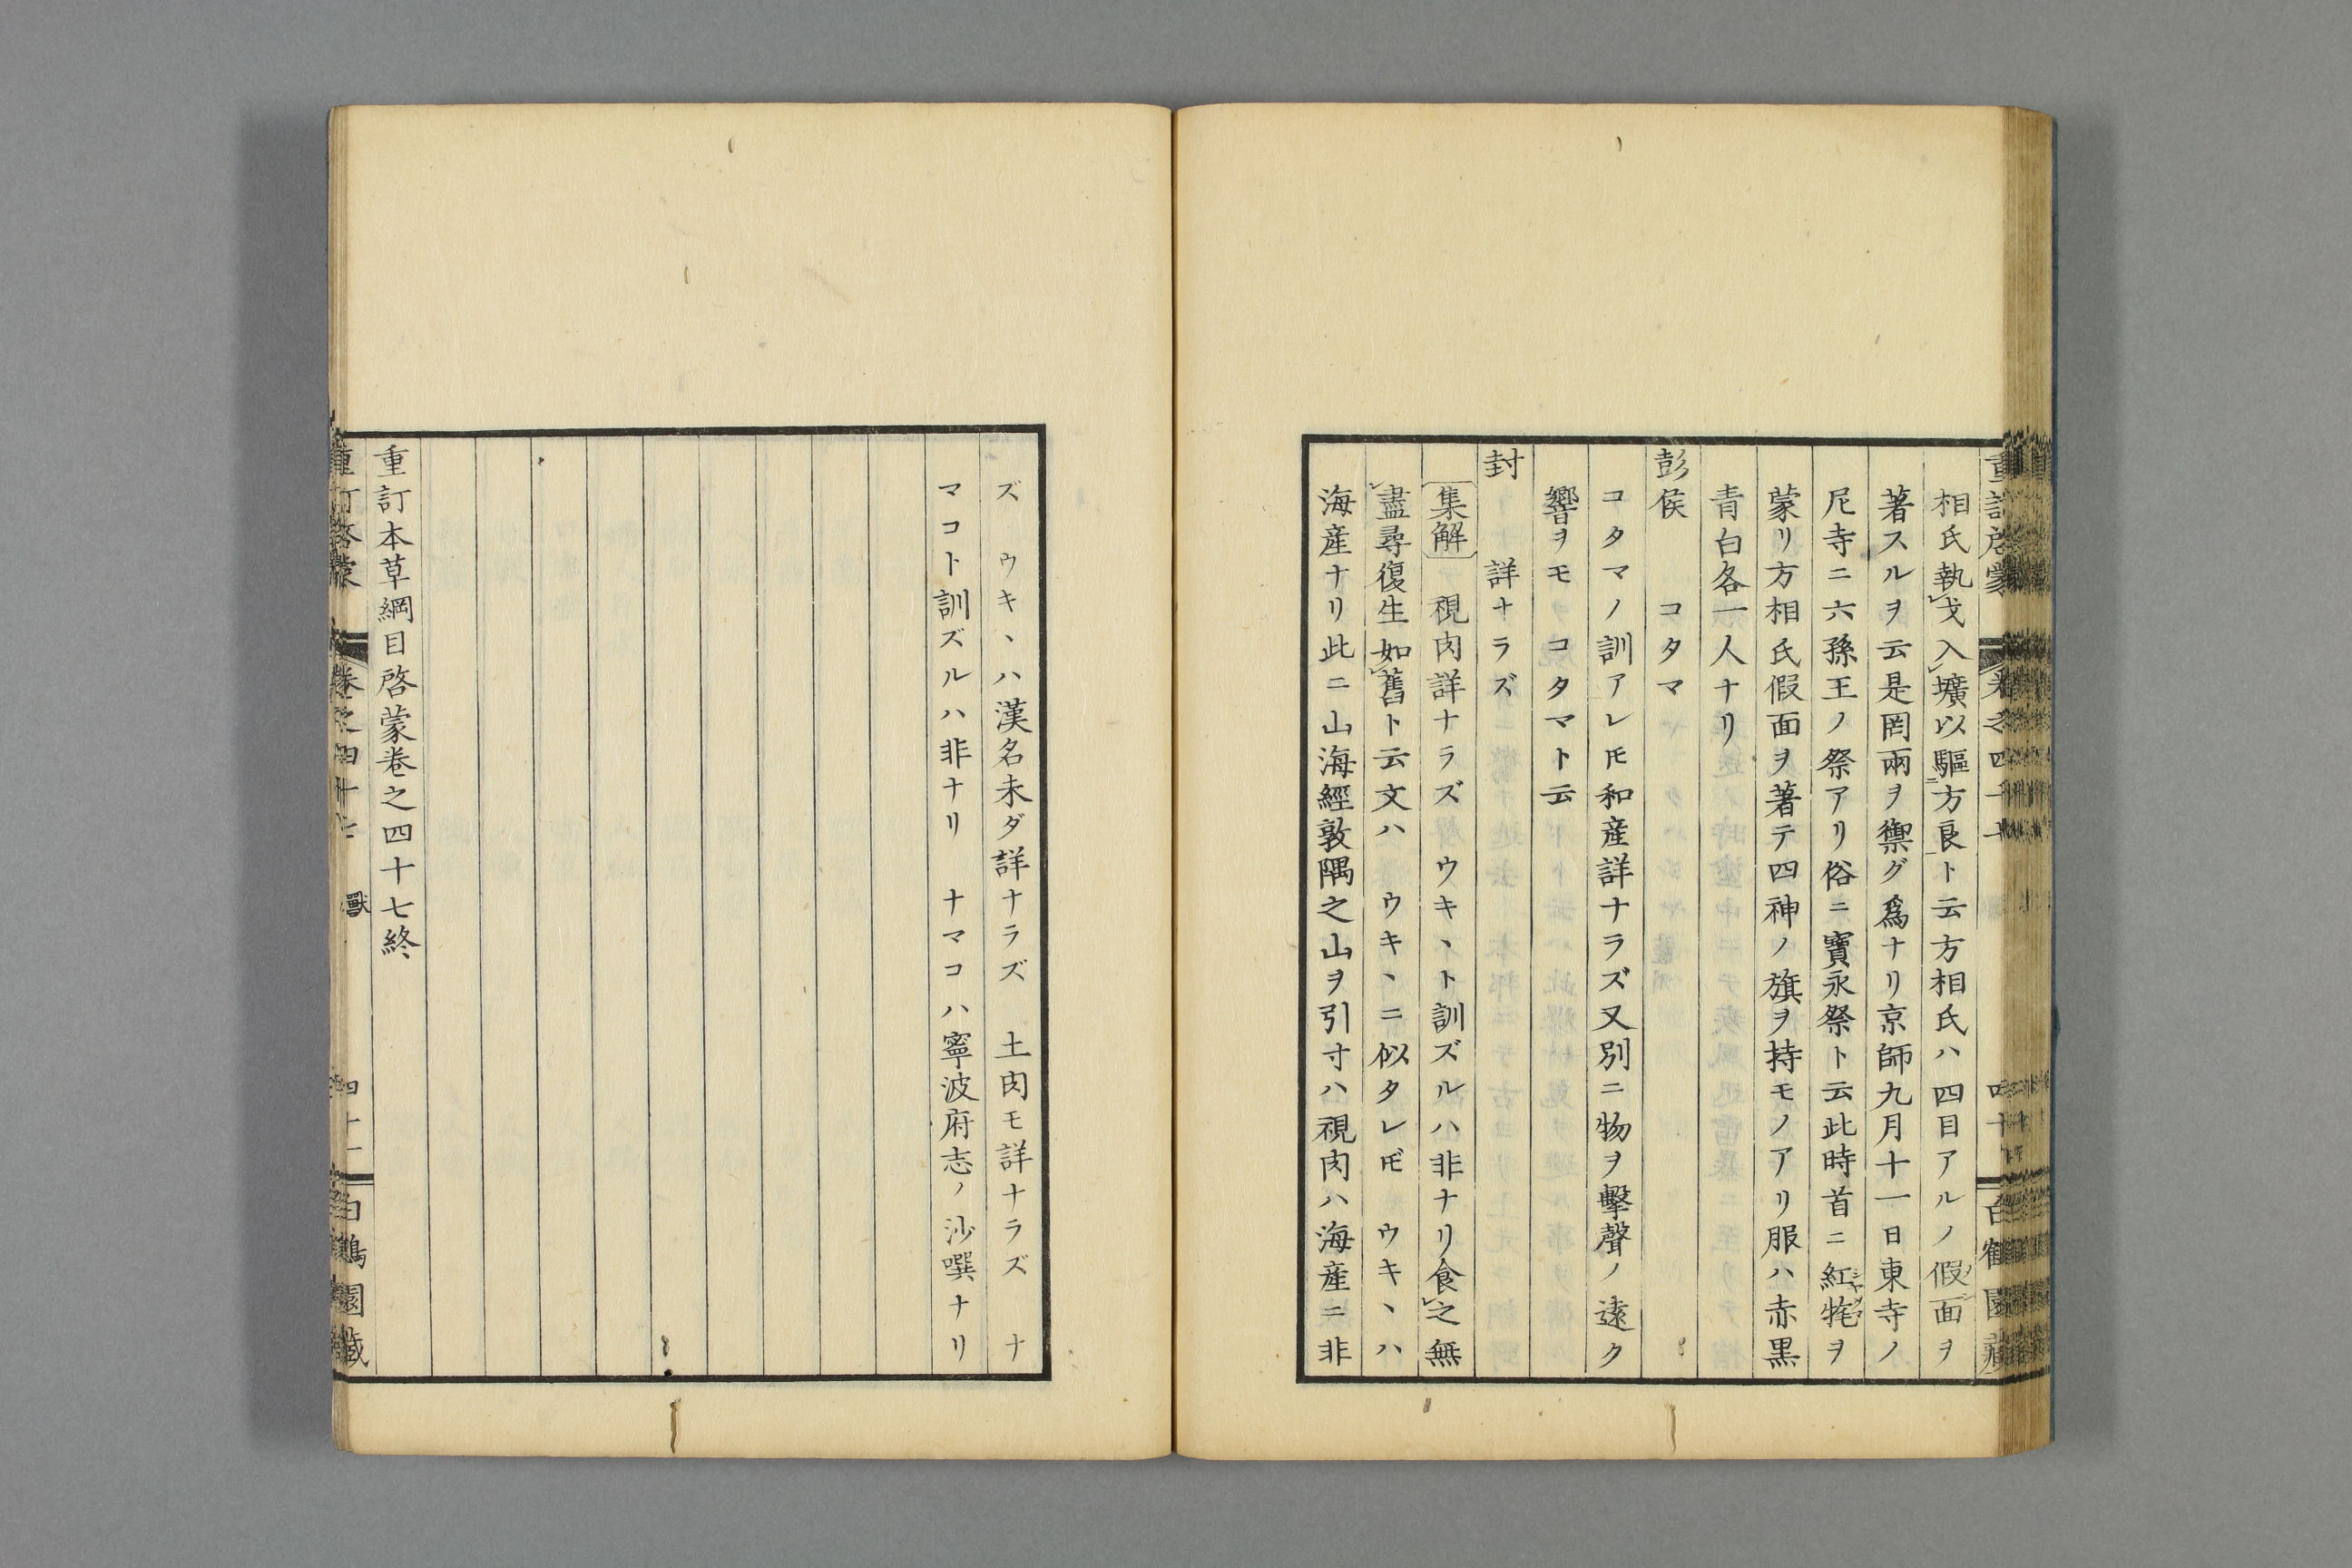 相氏執戈入壙以驅方良ト云方相氏ハ四目アルノ假面ヲ
著スルヲ云是罔兩ヲ禦グ爲ナリ京師九月十一日東寺ノ
尼寺ニ六孫王ノ祭アリ俗ニ寳永祭ト云此時首ニ紅牦ヲ
蒙リ方相氏假面ヲ著テ四神ノ旗ヲ持モノアリ服ハ赤黒
青白各一人ナリ
彭侯 コタマ
コタマノ訓アレ𪜈和産詳ナラズ又別ニ物ヲ擊聲ノ遠ク
響ヲモ コタマト云
封 詳ナラズ
集解 視肉詳ナラズ ウキヽト訓ズルハ非ナリ食之無
盡尋復生如舊ト云文ハ ウキヽニ似タレ𪜈 ウキヽハ
海産ナリ此ニ山海經敦隅之山ヲ引寸ハ視肉ハ海産ニ非
ズ ウキヽハ漢名未ダ詳ナラズ 土肉モ詳ナラズ ナ
マコト訓ズルハ非ナリ ナマコハ寧波府志ノ沙噀ナリ
重訂本草綱目啓蒙卷之四十七終
重訂啓蒙 卷之四十七 獸 四十一 白鶴園藏